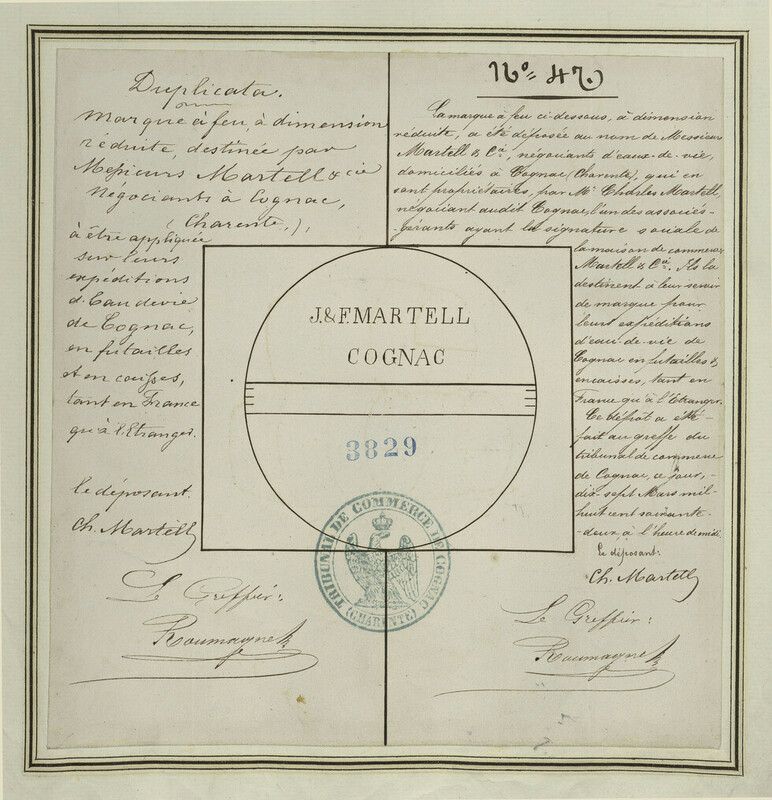 Duplicata.
Marque à feu, à dimension
réduite, destinée par
Messieurs Martell & cie
Négociants à Cognac,
(Charente,),
à être appliquée
sur leurs
expéditions
d'Eau de vie
de Cognac,
en futailles
et en caisses,
tant en France
qu'à l'Etranger.
le déposant.
Ch. Martell
Le Greffier:
Roumagne
No= 47.
La marque à feu ci-dessous, à dimension
réduite, a été déposée au nom de Messieurs
Martell & Cie, négociants d'eaux-de-vie,
domiciliés à Cognac (Charente), qui en
sont propriétaires, par Mr Charles Martell,
négociant audit Cognac, l'un des associés-
gérants ayant la signature sociale de
la maison de commerce
Martell & Cie. Ils la
destinent à leur servir
de marque pour
leurs expéditions
d'eau-de-vie de
Cognac en futailles &
en caisses, tant en
France qu'à l'Etranger.
Ce dépôt a été
fait au greffe du
tribunal de commerce
de Cognac, ce jour,
dix-sept Mars mil-
huit cent soixante-
deux à l'heure de midi.
Le déposant:
Ch. Martell
Le Greffier:
Roumagne
J.&F.MARTELL
COGNAC
3829
TRIBUNAL DE COMMERCE DE COGNAC
(CHARENTE)